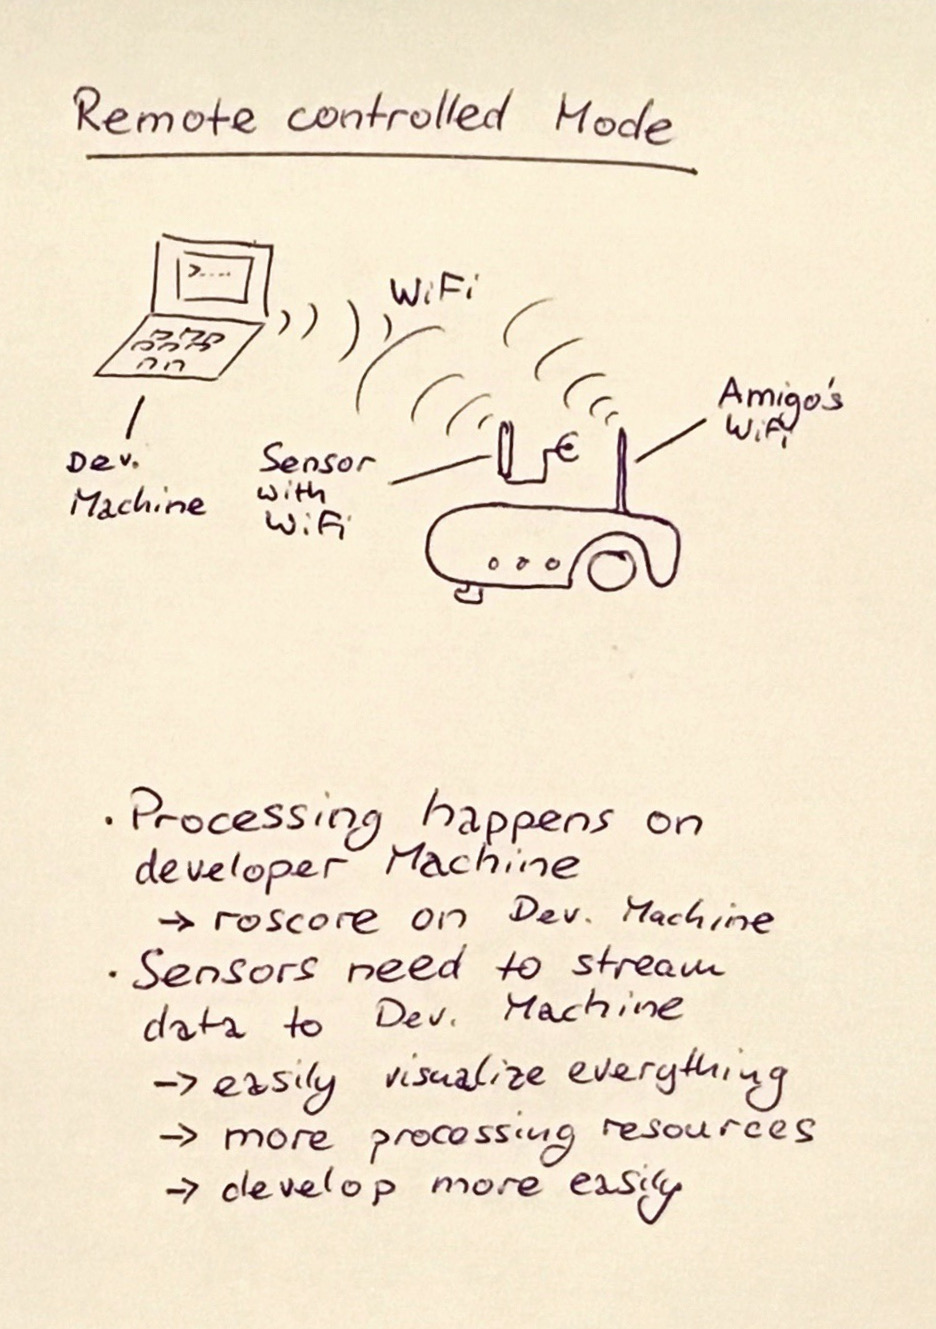 Remote controlled Mode
>....
WiFi
Amigo's
WiFi
Dev.
Machine
Sensor
with
WiFi
· Processing happens on
developer Machine
→ roscore on Dev. Machine
· Sensors need to stream
data to Dev. Machine
→ easily visualize everything
→ more processing resources
→ develop more easily